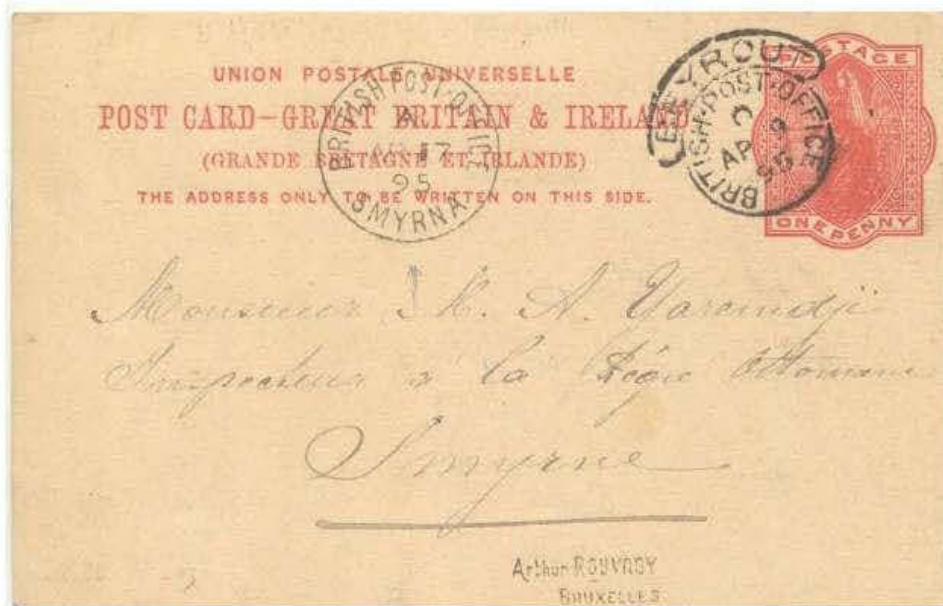 UNION POSTALE UNIVERSELLE
POST CARD-GREAT BRITAIN & IRELAND
(GRANDE BRETAGNE ET IRLANDE)
THE ADDRESS ONLY TO BE WRITTEN ON THIS SIDE.
BRITISH POST OFFICE
17
95
SMYRNA
BEYROUT
BRITISH·POST·OFFICE
C
AP 9
95
POSTAGE
ONE PENNY
Monsieur A.
Inspecteur à la Régie Ottomane
Smyrne
Arthur ROUVROY
BRUXELLES